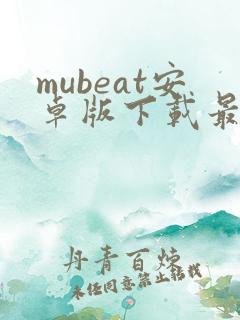 mubeat安
卓版下载最
丹青百炼
未经同意禁止转载